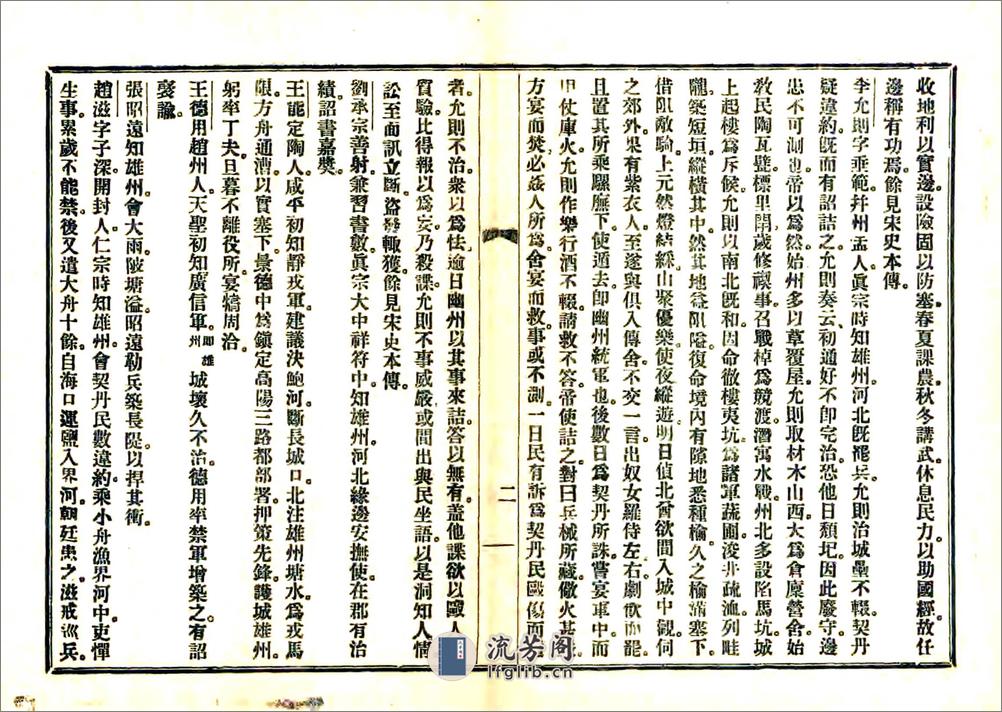 收地利以實邊設險固以防塞春夏課農秋冬講武休息民力以助國經故任
邊稱有功焉餘見宋史本傳。
李允則字垂範幷州盂人眞宗時知雄州河北旣罷兵允則治城壘不輟契丹
疑違約旣而有詔詰之允則奏云初通好不卽完治恐他日頹圮因此廢守邊
患不可測也帝以爲然始州多以草覆屋允則取材木山西大爲倉廩營舍始
敎民陶瓦甓標里閈歲修禊事召戰棹爲競渡潛寓水戰州北多設陷馬坑城
上起樓爲斥候允則以南北旣和因命徹樓夷坑爲諸軍蔬圃浚井疏洫列畦
隴築短垣縱橫其中然其地益阻隘復命境內有隙地悉種榆久之榆滿塞下。
借阻敵騎上元然燈結綵山聚優樂使夜縱遊明日偵北酋欲間入城中觀伺
之郊外果有紫衣人至遂與俱入傳舍不交一言出奴女羅侍左右劇飲而罷
且置其所乘騾廡下使遁去卽幽州統軍也後數日爲契丹所誅嘗宴軍中而
甲仗庫火允則作樂行酒不輟請救不答帝使詰之對曰兵械所藏儆火甚嚴
方宴而焚必姦人所爲舍宴而救事或不測一日民有訴爲契丹民毆傷而
者允則不治衆以爲怯逾日幽州以其事來詰答以無有蓋他諜欲以毆人
質驗比得報以爲妄乃殺諜允則不事威嚴或間出與民坐語以是洞知人情
訟至面訊立斷盜發輒獲餘見宋史本傳。
劉承宗善射兼習書數眞宗大中祥符中知雄州河北緣邊安撫使在郡有治
績詔書嘉奬
王能定陶人咸平初知靜戎軍建議決鮑河斷長城口北注雄州塘水爲戎馬
限方舟通漕以實塞下景德中爲鎭定高陽三路都部署押策先鋒護城雄州
躬率丁夫旦暮不離役所宴犒周洽
王德用趙州人天聖初知廣信軍卽雄州城壞久不治德用率禁軍增築之有詔
褒諭
張昭遠知雄州會大雨陂塘溢昭遠勒兵築長隄以捍其衝
趙滋字子深開封人仁宗時知雄州會契丹民數違約乘小舟漁界河中吏憚
生事累歲不能禁後又遣大舟十餘自海口運鹽入界河朝廷患之滋戒巡兵
二
流芳阁
lfglib.cn